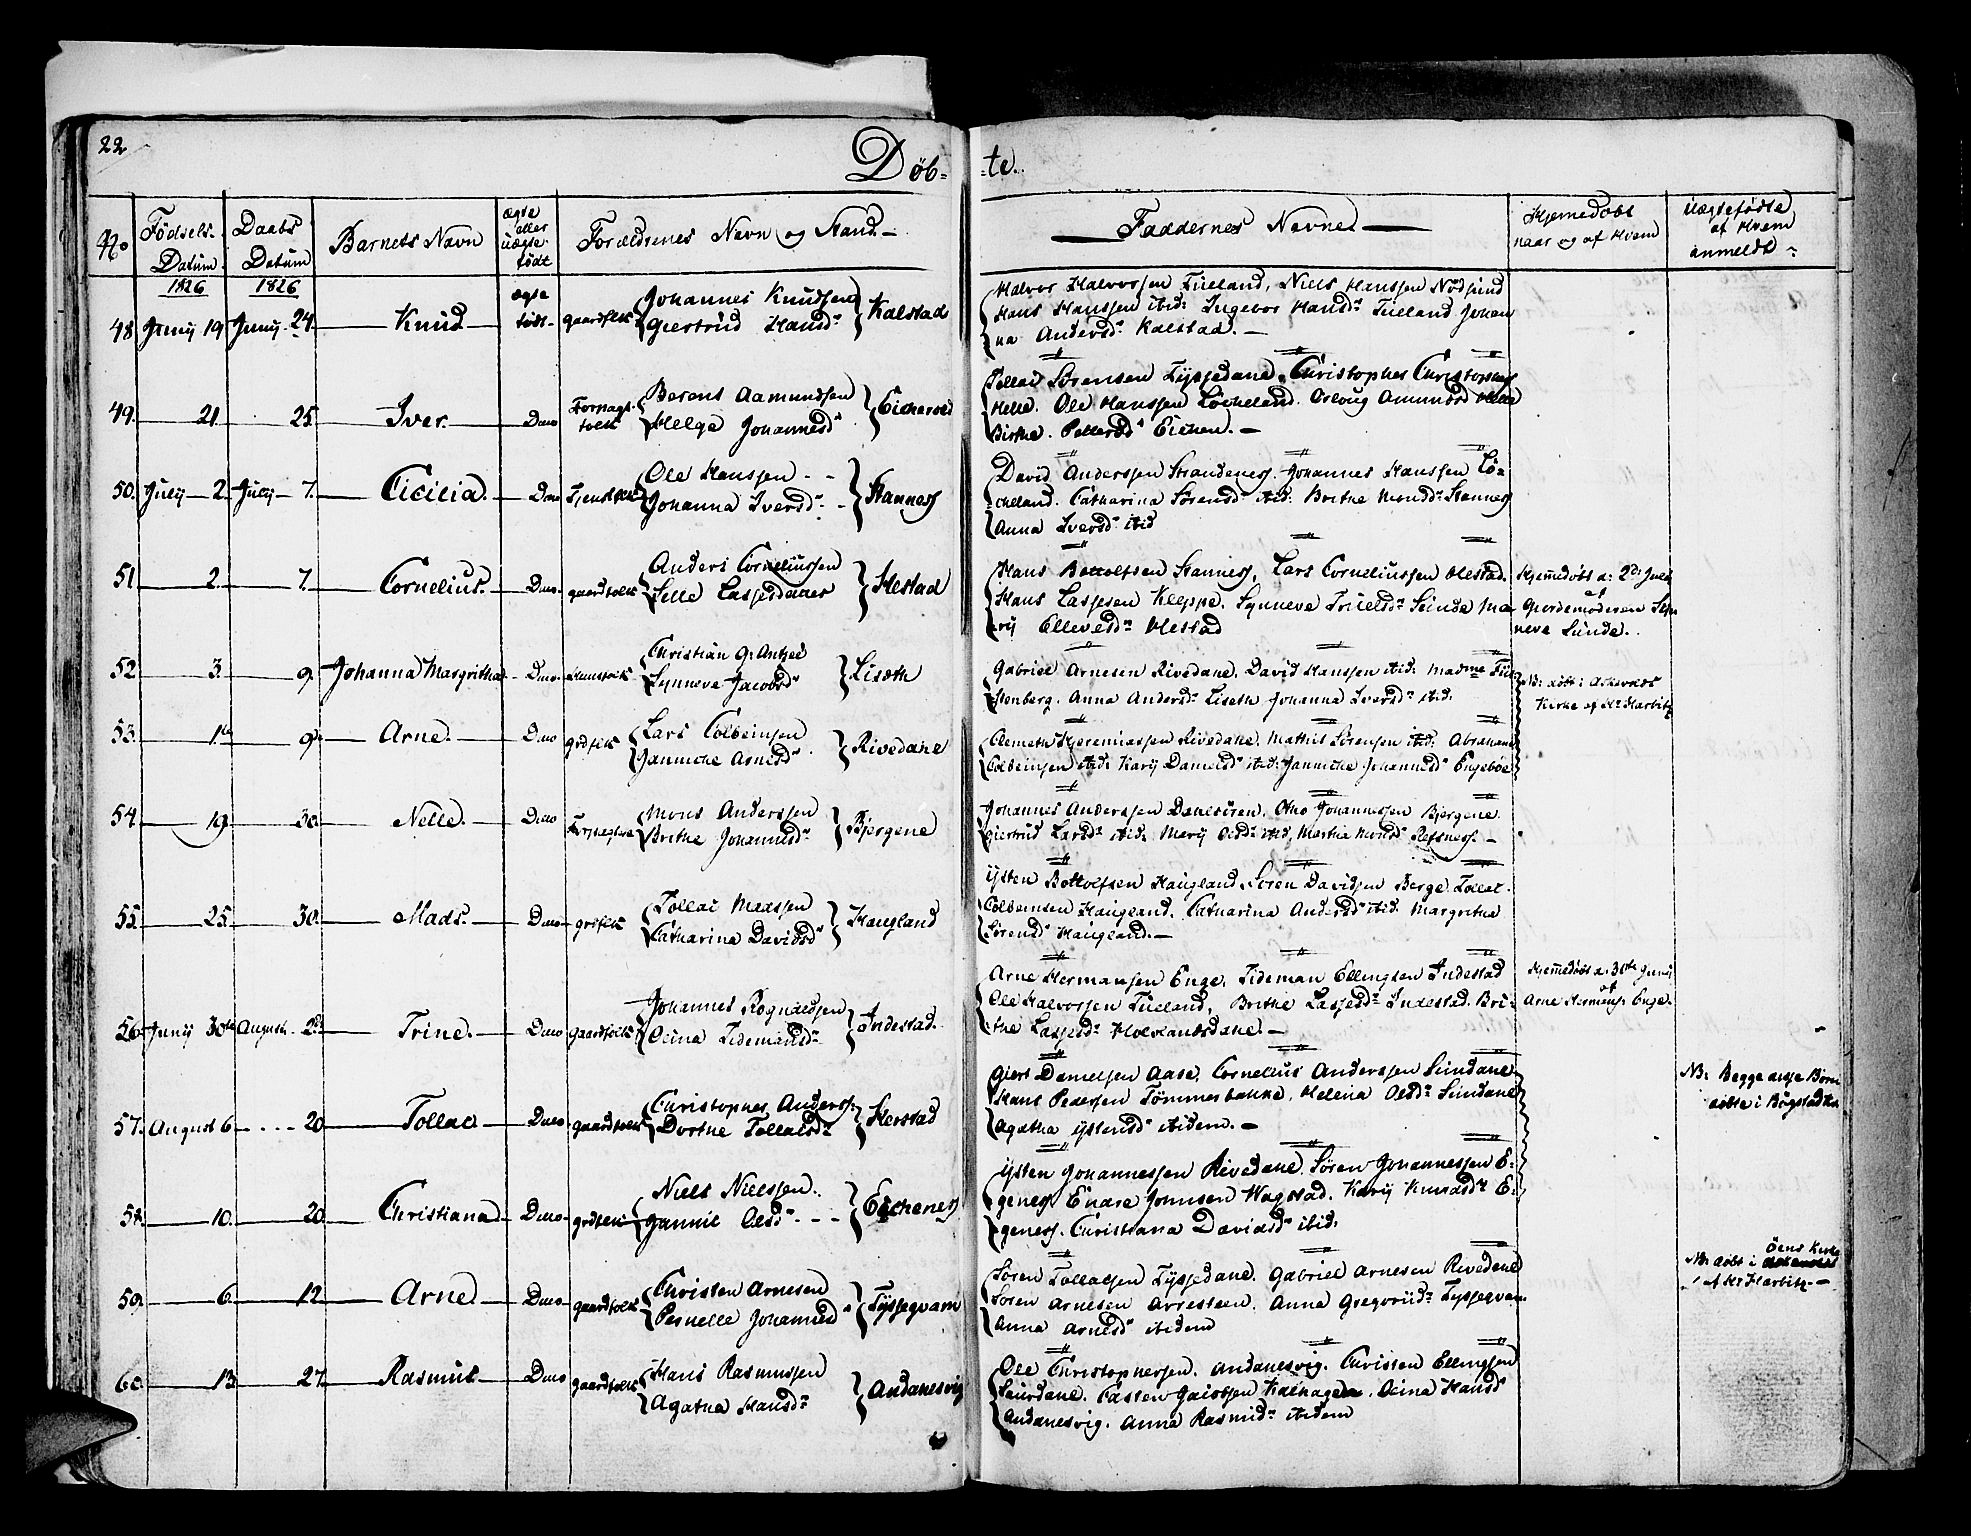 22
Døb-
-te.
No
Fødsels Datum
Daabs Datum
Barnets Navn
ægte eller uægte født
Forældrenes Navn og Stand
Faddernes Navne
Hjemedøbt naar og af Hvem
Uægtefødte af Hvem anmeldt
1826
1826
48 Junij 19 Junij 24 Knud ægte født gaardfolk Johannes Knudsen Giertrud Hansdr Kalstad
Halvor Halvorsen Tueland, Niels Hanssen Nødsund
Hans Hanssen ibid: Ingebor Hansdr Tueland Johan
na Andersdr Kalstad.
49. 21 25 Iver Duo Berent Aamundsen Helge Johannesdr
Tollac Sørensen Tyssedane, Christopher Christophers
Helle. Ole Hanssen Løcheland. Amundsd Helle
Birthe Pettersdr Eichen.
50. July 2 July 7. Cicilia Duo Ole Hanssen Johanna Iversdr Stannes
David Anderssen Strandenes, Johannes Hanssen Lø-
cheland. Catharina Sørensdr ibid: Brithe Monsdr Stannes
Anna Iversdr ibid
51 2 7. Cornelius. Duo gaardfolk Anders Corneliussen Hestad
Hans Bottolfsen Stannes, Lars Corneliussen Hestad.
Hans Lassesen Kleppe. Synneve Truelsdr Sunde Ma-
rij Ellevesdr Hestad
Hjemedøbt d: 2de July
af
Giordemoderen Syn
neve Sunde.
52 3. 9. Johanna Margritha Duo Christian G: Synneve Jacobsdr Liseth
Gabriel Arnesen Rivedane, David Hanssen ibid: Madme Für
stenberg. Anna Andersdr Liseth Johanna Iversdr ibid:
NB: døbt i Askevolds
Kirke af Hr Harbitz
53. 9 Arne. Duo grdfolk Lars Colbeinsen Jannicke Arnesdr Rivedane
Clemeth Hjeremiassen Rivedane, Mathis Sørensen ibid: Abraham
Colbeinsen ibid: Karij Danielsdr ibid: Jannicke Johannesdr Engebøe
54 19 30. Nelle. Duo Mons Anderssen Brithe Johannesdr Bjergene
Johannes Anderssen Otho Johannessen Bjergene.
Giertrud Larsdr ibid: Marij Olsdr ibid, Martha Monsdr
55. 25. 30. Mads. Duo grdfolk Tollac Madssen Catharina Davidsdr Haugland
Ysten Bottolfsen Haugland Søren Davidsen Berge Tollac
Colbeinsen Haugland. Catharina Andersdr ibid: Margretha
Sørensdr Haugland.
56 Junij 30te August 2de Trine. Duo gaardfolk Johannes Rognaldsen Olina Tidemansdr Indestad.
Arne Hermansen Enge, Tideman Ellingsen Indestad
Ole Halvorsen Tueland, Brithe Lassesdr Indestad. Bri-
the Lassesdr
Hjemedøbt d: 30te Junij
af
Arne Hermans: Enge.
57. August 6 20 Tollac Duo gaardfolk Christopher Anderss: Dorthe Tollacsdr
Giert Danielsen Aase, Cornelius Anderssen Sundane
Hans Pedersen Tømmerbakke, Helena Olsdr Sundane
Agatha Ystensdr ibidem.
NB: Begge disse Børn
døbte i
58. 10. 20 Christiana Duo Niels Nielssen. Jannic Olsdr Eichenes
Ysten Johannessen Rivedane, Søren Johannessen E-
genes Johnsen Vagstad. Karij Knudsdr E-
genes. Christiana Davidsdr ibid:
59. 6. 12 Arne Duo gaardfolk Christen Arnesen Pernelle Johannesd Tyssegvam
Søren Tollacsen Tyssedane. Gabriel Arnesen Rivedane
Søren Arnesen Arresteen. Anna Gregoriidr Tyssegvam
Anna Arnesdr ibidem
NB: døbt i Øens Kirke
af Hr Harbitz
60. 13 27 Rasmus Duo gaardfolk Hans Rasmussen Agatha Hansdr Andanesvig
Ole Christophersen. Andanesvig. Christen Ellingsen
Casten Jacobsen Olina Hansd
Andanesvig. Anna Rasmidr ibidem